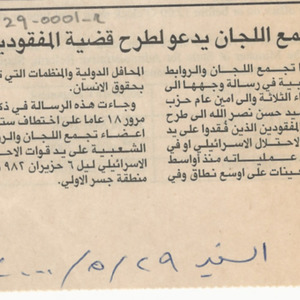 29-0001-2
تجمع اللجان يدعو لطرح قضية المفقودين
تجمع اللجان والروابط
في رسالة وجهها الى
الثلاثة والى امين عام حزب
حسن نصر الله الى طرح
المفقودين الذين فقدوا على يد
الاحتلال الاسرائيلي او في
عملياته منذ أواسط
على أوسع نطاق وفي
المحافل الدولية والمنظمات التي
بحقوق الانسان.
وجاءت هذه الرسالة في
مرور ١٨ عاما على اختطاف
اعضاء تجمع اللجان
الشعبية على يد قوات
الاسرائيلي ليل ٦ حزيران ١٩٨٢
منطقة جسر الاولي.
السفير ٢٩/٥/